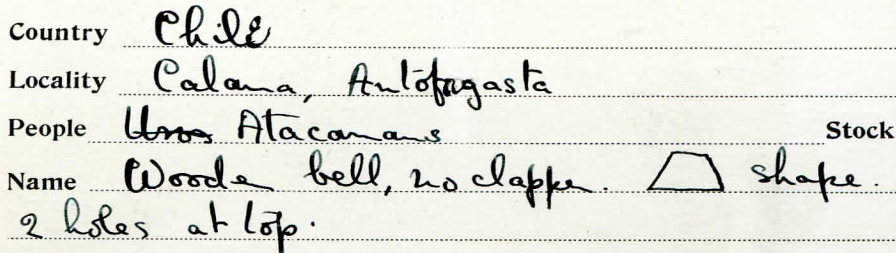 Country Chile
Locality Calama, Antofagasta
People Uros Atacamans Stock
Name Wooden bell, no clapper. shape.
2 holes at top.